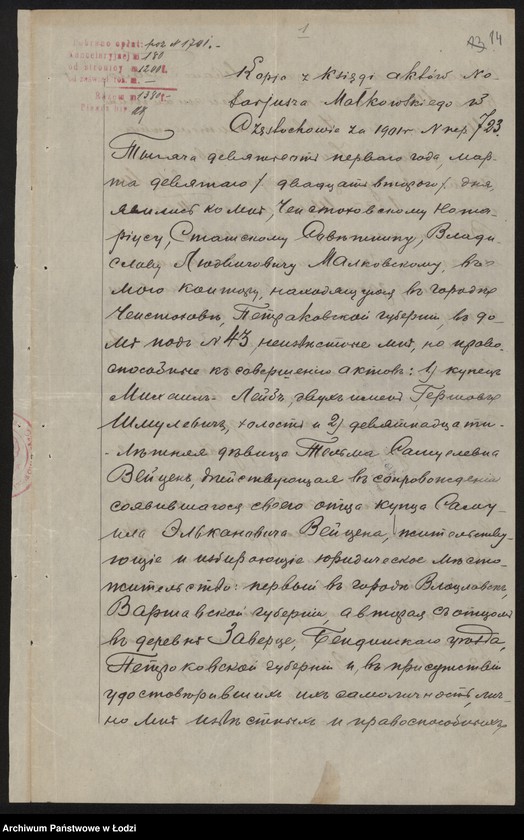 1
14
poz N 1701.-
180
1200
Razem m. 1380.-
Kopja z Księgi aktów No-
tarjusza Małkowskiego w
Częstochowie za 1901 r N rep 723.
Тысяча девятьсотъ перваго года, мар-
та девятаго / двадцать втораго / дня,
явились ко мнѣ, Ченстоховскому Нота-
ріусу, Статскому Совѣтнику, Влади-
славу Людвиговичу Малковскому, въ
мою контору, находящуюся въ городѣ
Ченстоховѣ, Петроковской губерніи, въ до-
мѣ подъ N 43, неизвѣстные мнѣ, но право-
способные къ совершенію актовъ: 1) купецъ
Михаилъ-Лейбъ, двухъ именъ, Гершовъ
Шмулевичъ, холостъ и 2) девятнадцати-
лѣтняя дѣвица Тельма Самуиловна
Вейценъ, дѣйствующая въ сопровожденіи
соявившагося своего отца купца Саму-
ила Элькановича Вейцена, жительству-
ющіе и избирающіе юридическое мѣсто-
жительство: первый въ городѣ Влоцлавскѣ,
Варшавской губерніи, а вторая съ отцомъ
въ деревнѣ Заверце, Бендинскаго уѣзда,
Петроковской губерніи и, въ присутствіи
удостовѣрившихъ ихъ самоличность, лич-
но мнѣ извѣстныхъ и правоспособныхъ
Archiwum Państwowe w Łodzi